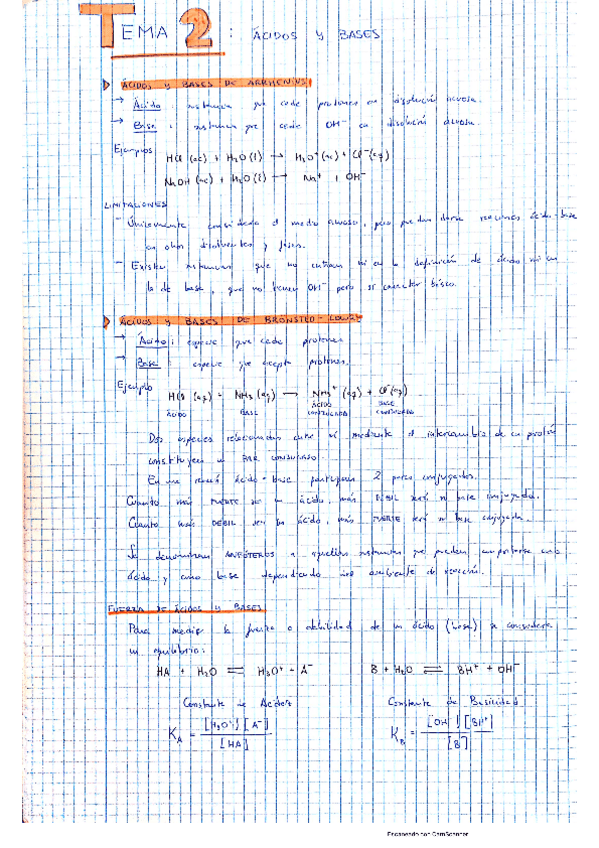 TEMA 2 : ÁCIDOS Y BASES
ÁCIDOS Y BASES DE ARRHENIUS
→ Ácido : sustancia que cede protones en disolución acuosa.
→ Base : sustancia que cede OH⁻ en disolución acuosa.
Ejemplos
HCl (ac) + H₂O (l) → H₃O⁺ (ac) + Cl⁻ (aq)
NaOH (ac) + H₂O (l) → Na⁺ + OH⁻
LIMITACIONES
- Únicamente considera el medio acuoso, pero pueden darse reacciones ácido-base
en otros disolventes y fases.
- Existen sustancias que no entran ni en la definición de ácido ni en
la de base, que no tienen OH⁻ pero sí carácter básico.
ÁCIDOS Y BASES DE BRÖNSTED-LOWRY
→ Ácido : especie que cede protones
→ Base : especie que acepta protones.
Ejemplo
HCl (aq) + NH₃ (aq) → NH₄⁺ (aq) + Cl⁻ (aq)
ÁCIDO BASE ÁCIDO CONJUGADO BASE CONJUGADA
Dos especies relacionadas entre sí mediante el intercambio de un protón
constituyen un PAR CONJUGADO.
En una ácido-base participan 2 pares conjugados.
Cuanto más FUERTE sea un ácido, más DÉBIL será su base conjugada.
Cuanto más DÉBIL sea un ácido, más FUERTE será su base conjugada.
Se denominan ANFÓTEROS a aquellas sustancias que pueden comportarse como
ácido y como base dependiendo del ambiente de reacción.
FUERZA DE ÁCIDOS Y BASES
Para medir la fuerza o debilidad de un ácido (base) se considera
un equilibrio:
HA + H₂O ⇌ H₃O⁺ + A⁻ B + H₂O ⇌ BH⁺ + OH⁻
Constante de Acidez Constante de Basicidad
K_A = [H₃O⁺][A⁻] / [HA] K_B = [OH⁻][BH⁺] / [B]
Escaneado con CamScanner